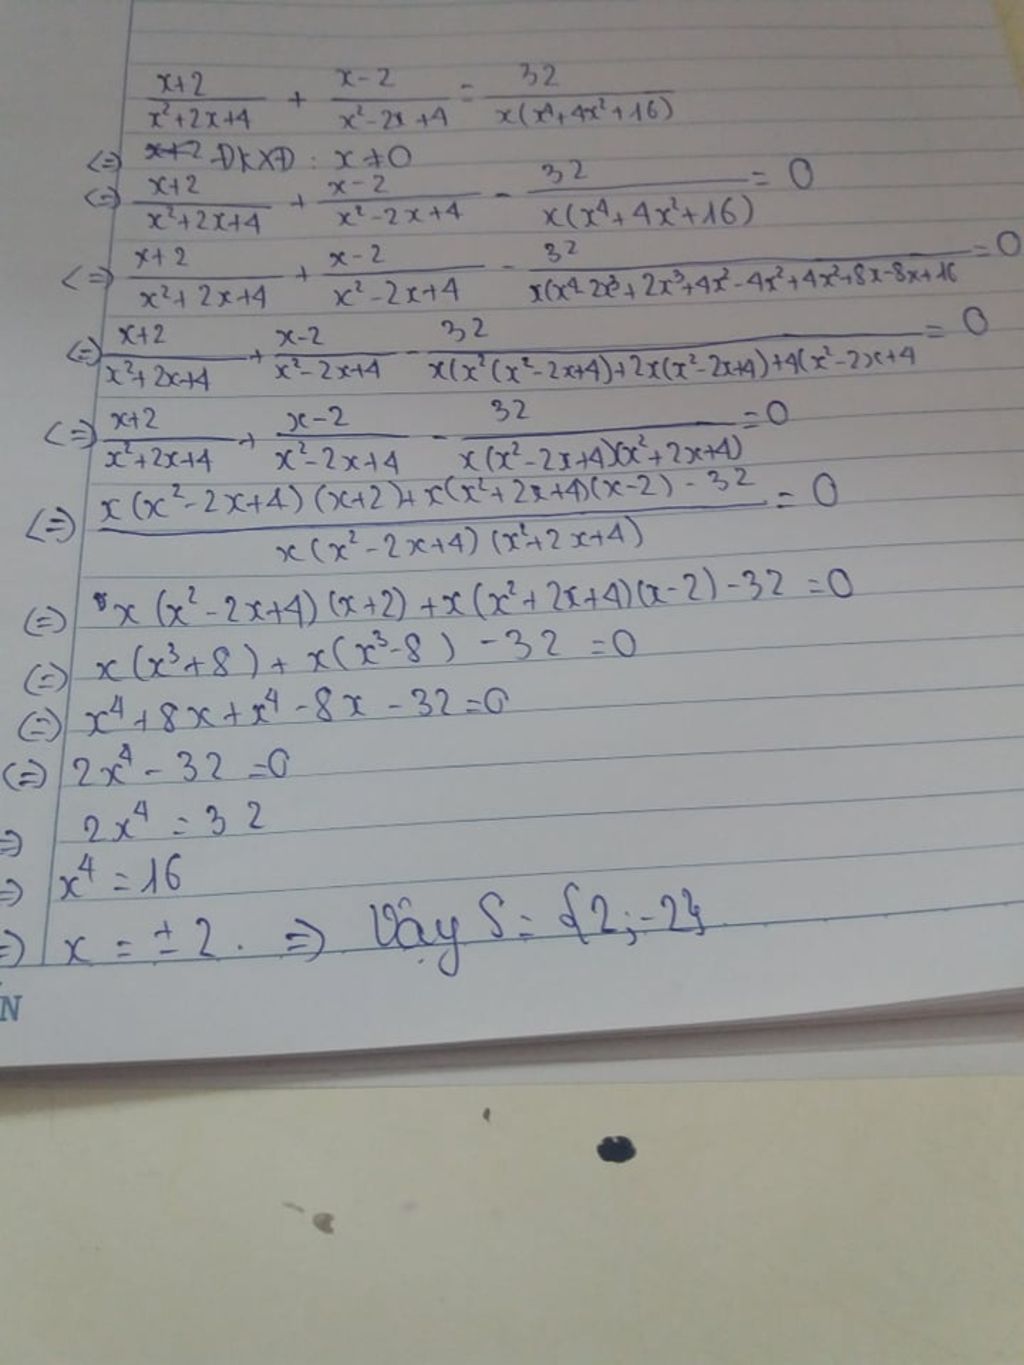 x+2/x²+2x+4 + x-2/x²-2x+4 = 32/x(x⁴+4x²+16)
<=> x+2 ĐKXĐ: x≠0
<=> x+2/x²+2x+4 + x-2/x²-2x+4 - 32/x(x⁴+4x²+16) = 0
<=> x+2/x²+2x+4 + x-2/x²-2x+4 - 32/x(x⁴-2x³+2x³+4x²-4x²+4x²+8x-8x+16 = 0
<=> x+2/x²+2x+4 + x-2/x²-2x+4 - 32/x(x²(x²-2x+4)+2x(x²-2x+4)+4(x²-2x+4 = 0
<=> x+2/x²+2x+4 + x-2/x²-2x+4 - 32/x(x²-2x+4)(x²+2x+4) = 0
<=> x(x²-2x+4)(x+2)+x(x²+2x+4)(x-2)-32/x(x²-2x+4)(x²+2x+4) = 0
<=> x(x²-2x+4)(x+2)+x(x²+2x+4)(x-2)-32=0
<=> x(x³+8)+x(x³-8)-32=0
<=> x⁴+8x+x⁴-8x-32=0
<=> 2x⁴-32=0
=> 2x⁴=32
=> x⁴=16
=> x=±2. => Vậy S={2;-2}
N